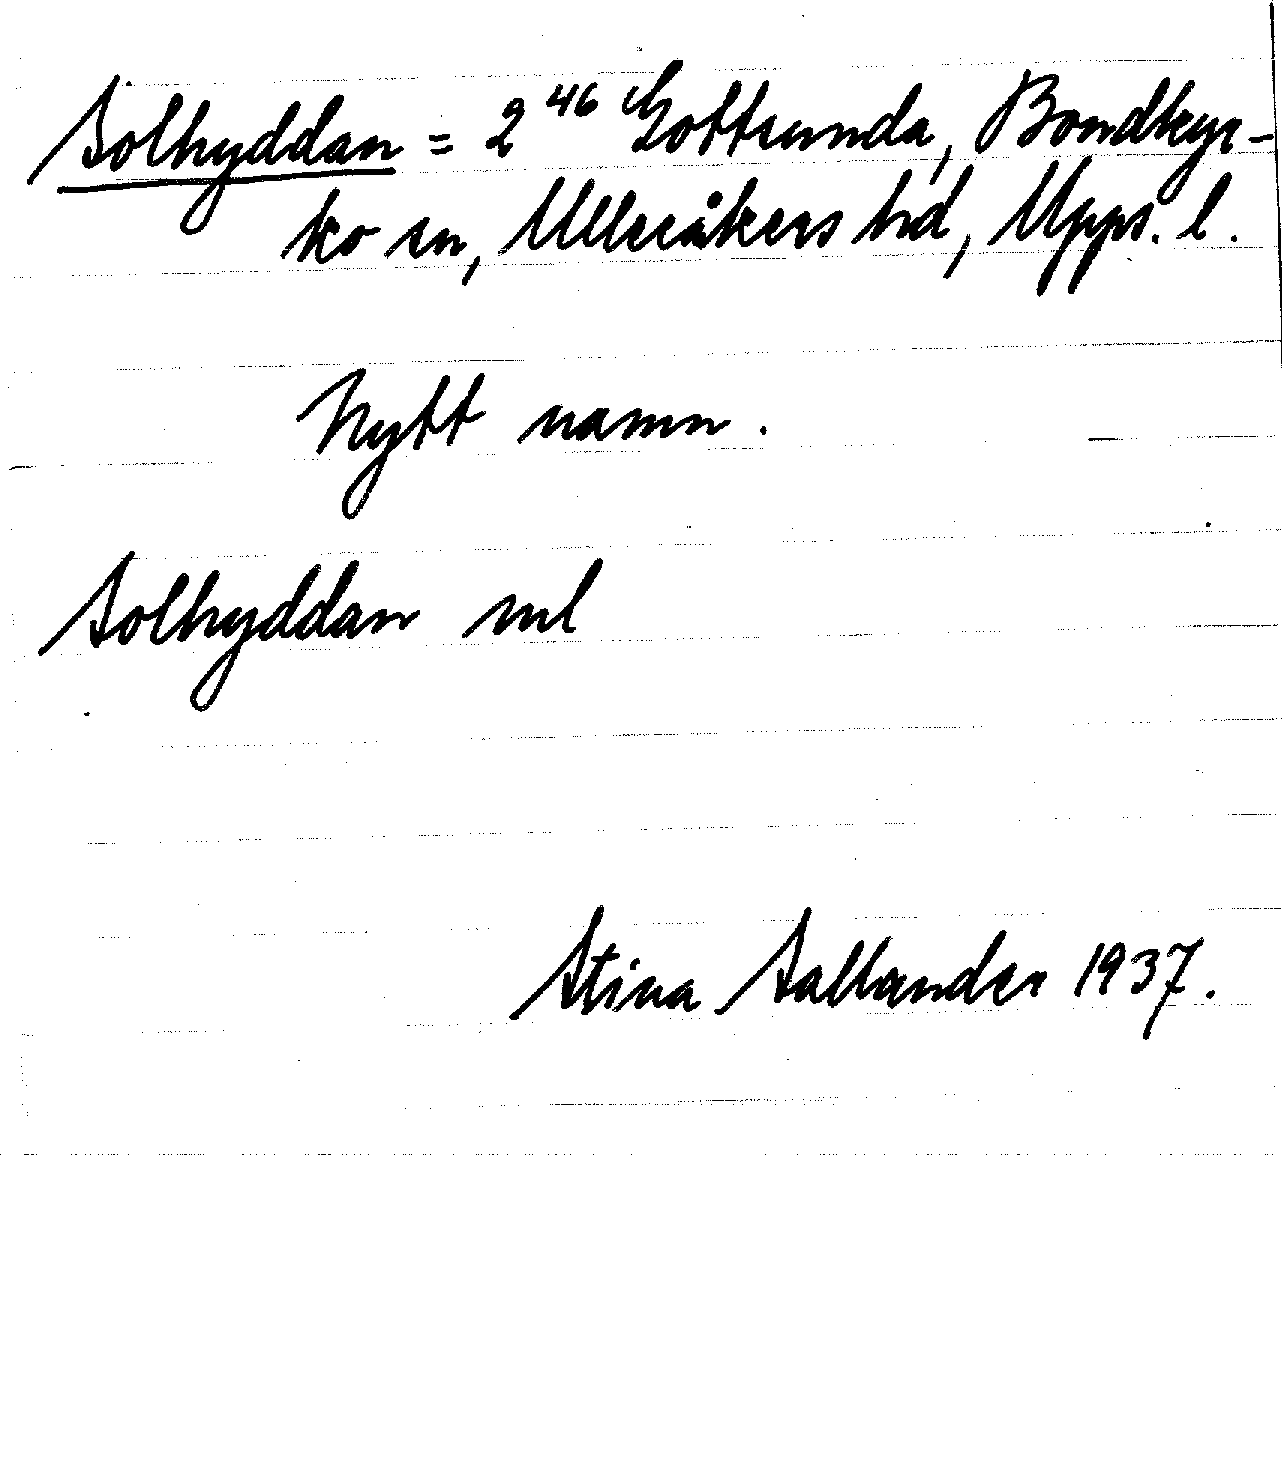 Solhyddan = 2 46 Gottsunda, Bondkyr-
ko sn, Ulleråkers hd, Upps. l.
Nytt namn.
Solhyddan ml
Stina Sallander 1937.